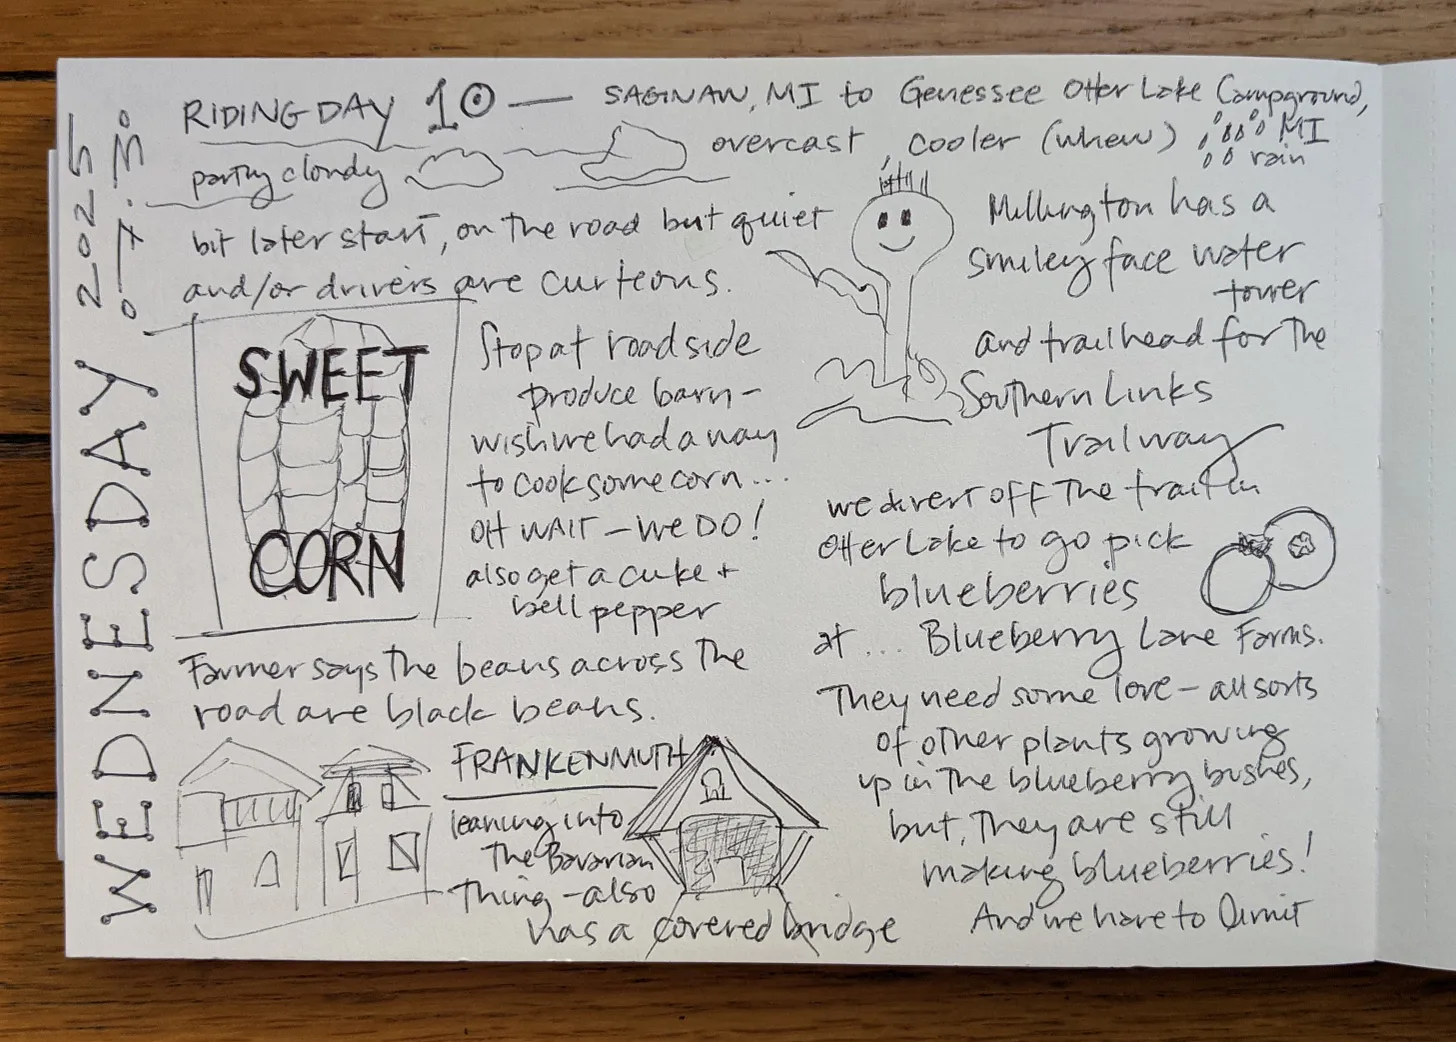 WEDNESDAY 2025 .7.30
RIDING DAY 10 — SAGINAW, MI to Genessee Otter Lake Campground,
MI
partly cloudy overcast, cooler (whew) rain
bit later start, on the road but quiet
and/or drivers are curteous.
SWEET
CORN
Stop at roadside
produce barn –
wish we had a way
to cook some corn...
OH WAIT – WE DO!
also get a cuke +
bell pepper
Farmer says the beans across the
road are black beans.
FRANKENMUTH
leaning into
The Bavarian
Thing – also
has a covered bridge
Millington has a
smiley face water
tower
and trailhead for the
Southern Links
Trailway
we divert off the trail in
Otter Lake to go pick
blueberries
at ... Blueberry Lane Farms.
They need some love – all sorts
of other plants growing
up in the blueberry bushes,
but, they are still
making blueberries!
And we have to limit